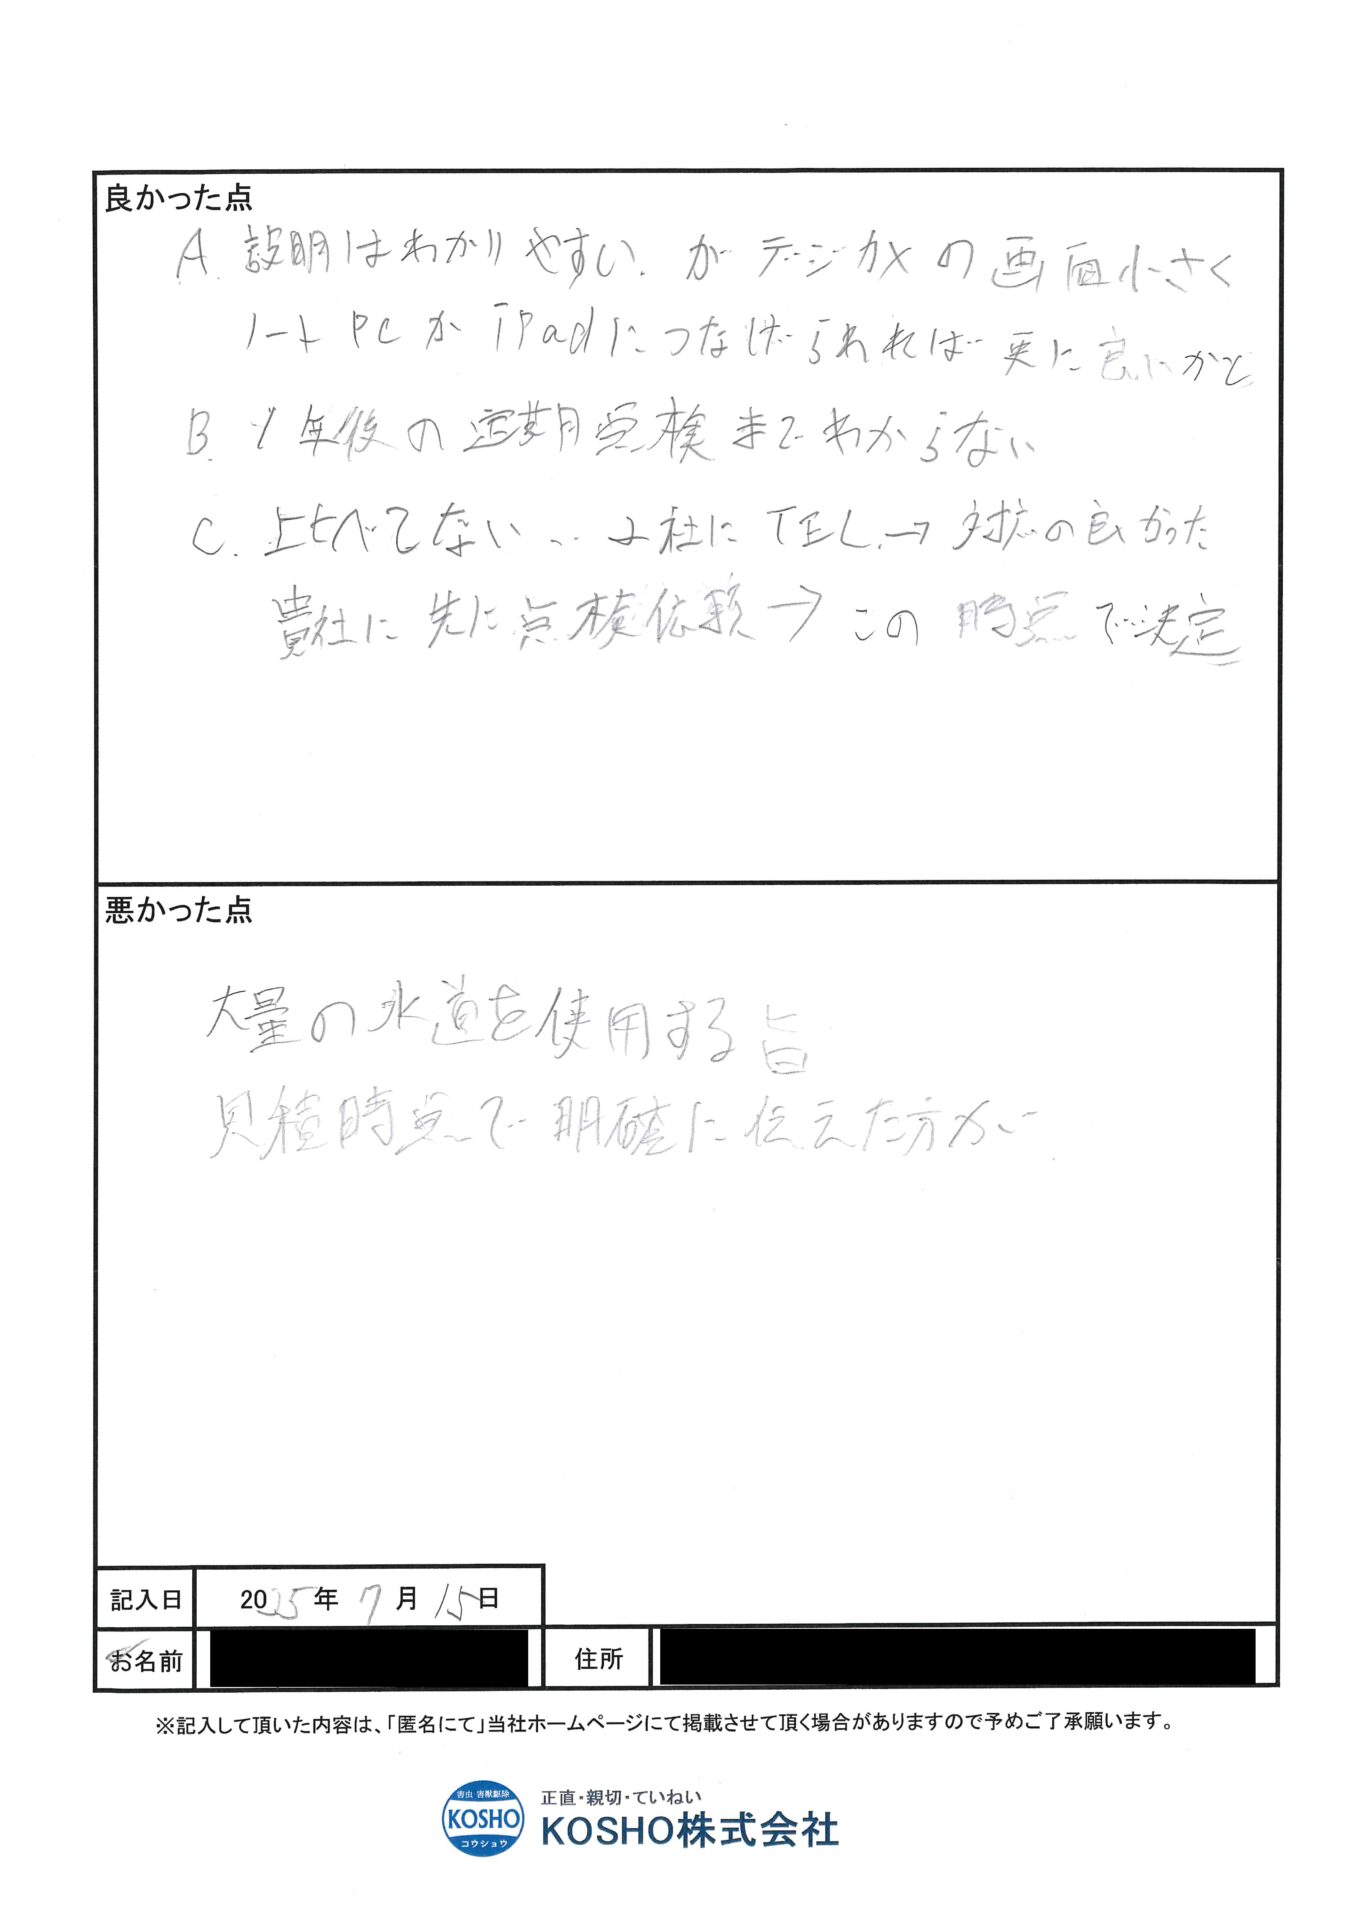 良かった点
A. 設明はわかりやすい.が デジカメの画面小さく
ノートPCか iPadにつなげられれば 更に良いかと
B. 1年後の定期点検までわからない
C. 比べてない... 2社にTEL.→対応の良かった
貴社に先に点検依頼→この時点で決定
悪かった点
大量の水道を使用する旨
見積時点で明確に伝えた方が
記入日 2025年 7月 15日
お名前 住所
※記入して頂いた内容は、「匿名にて」当社ホームページにて掲載させて頂く場合がありますので予めご了承願います。
害虫 害獣駆除
KOSHO
コウショウ
正直・親切・ていねい
KOSHO株式会社